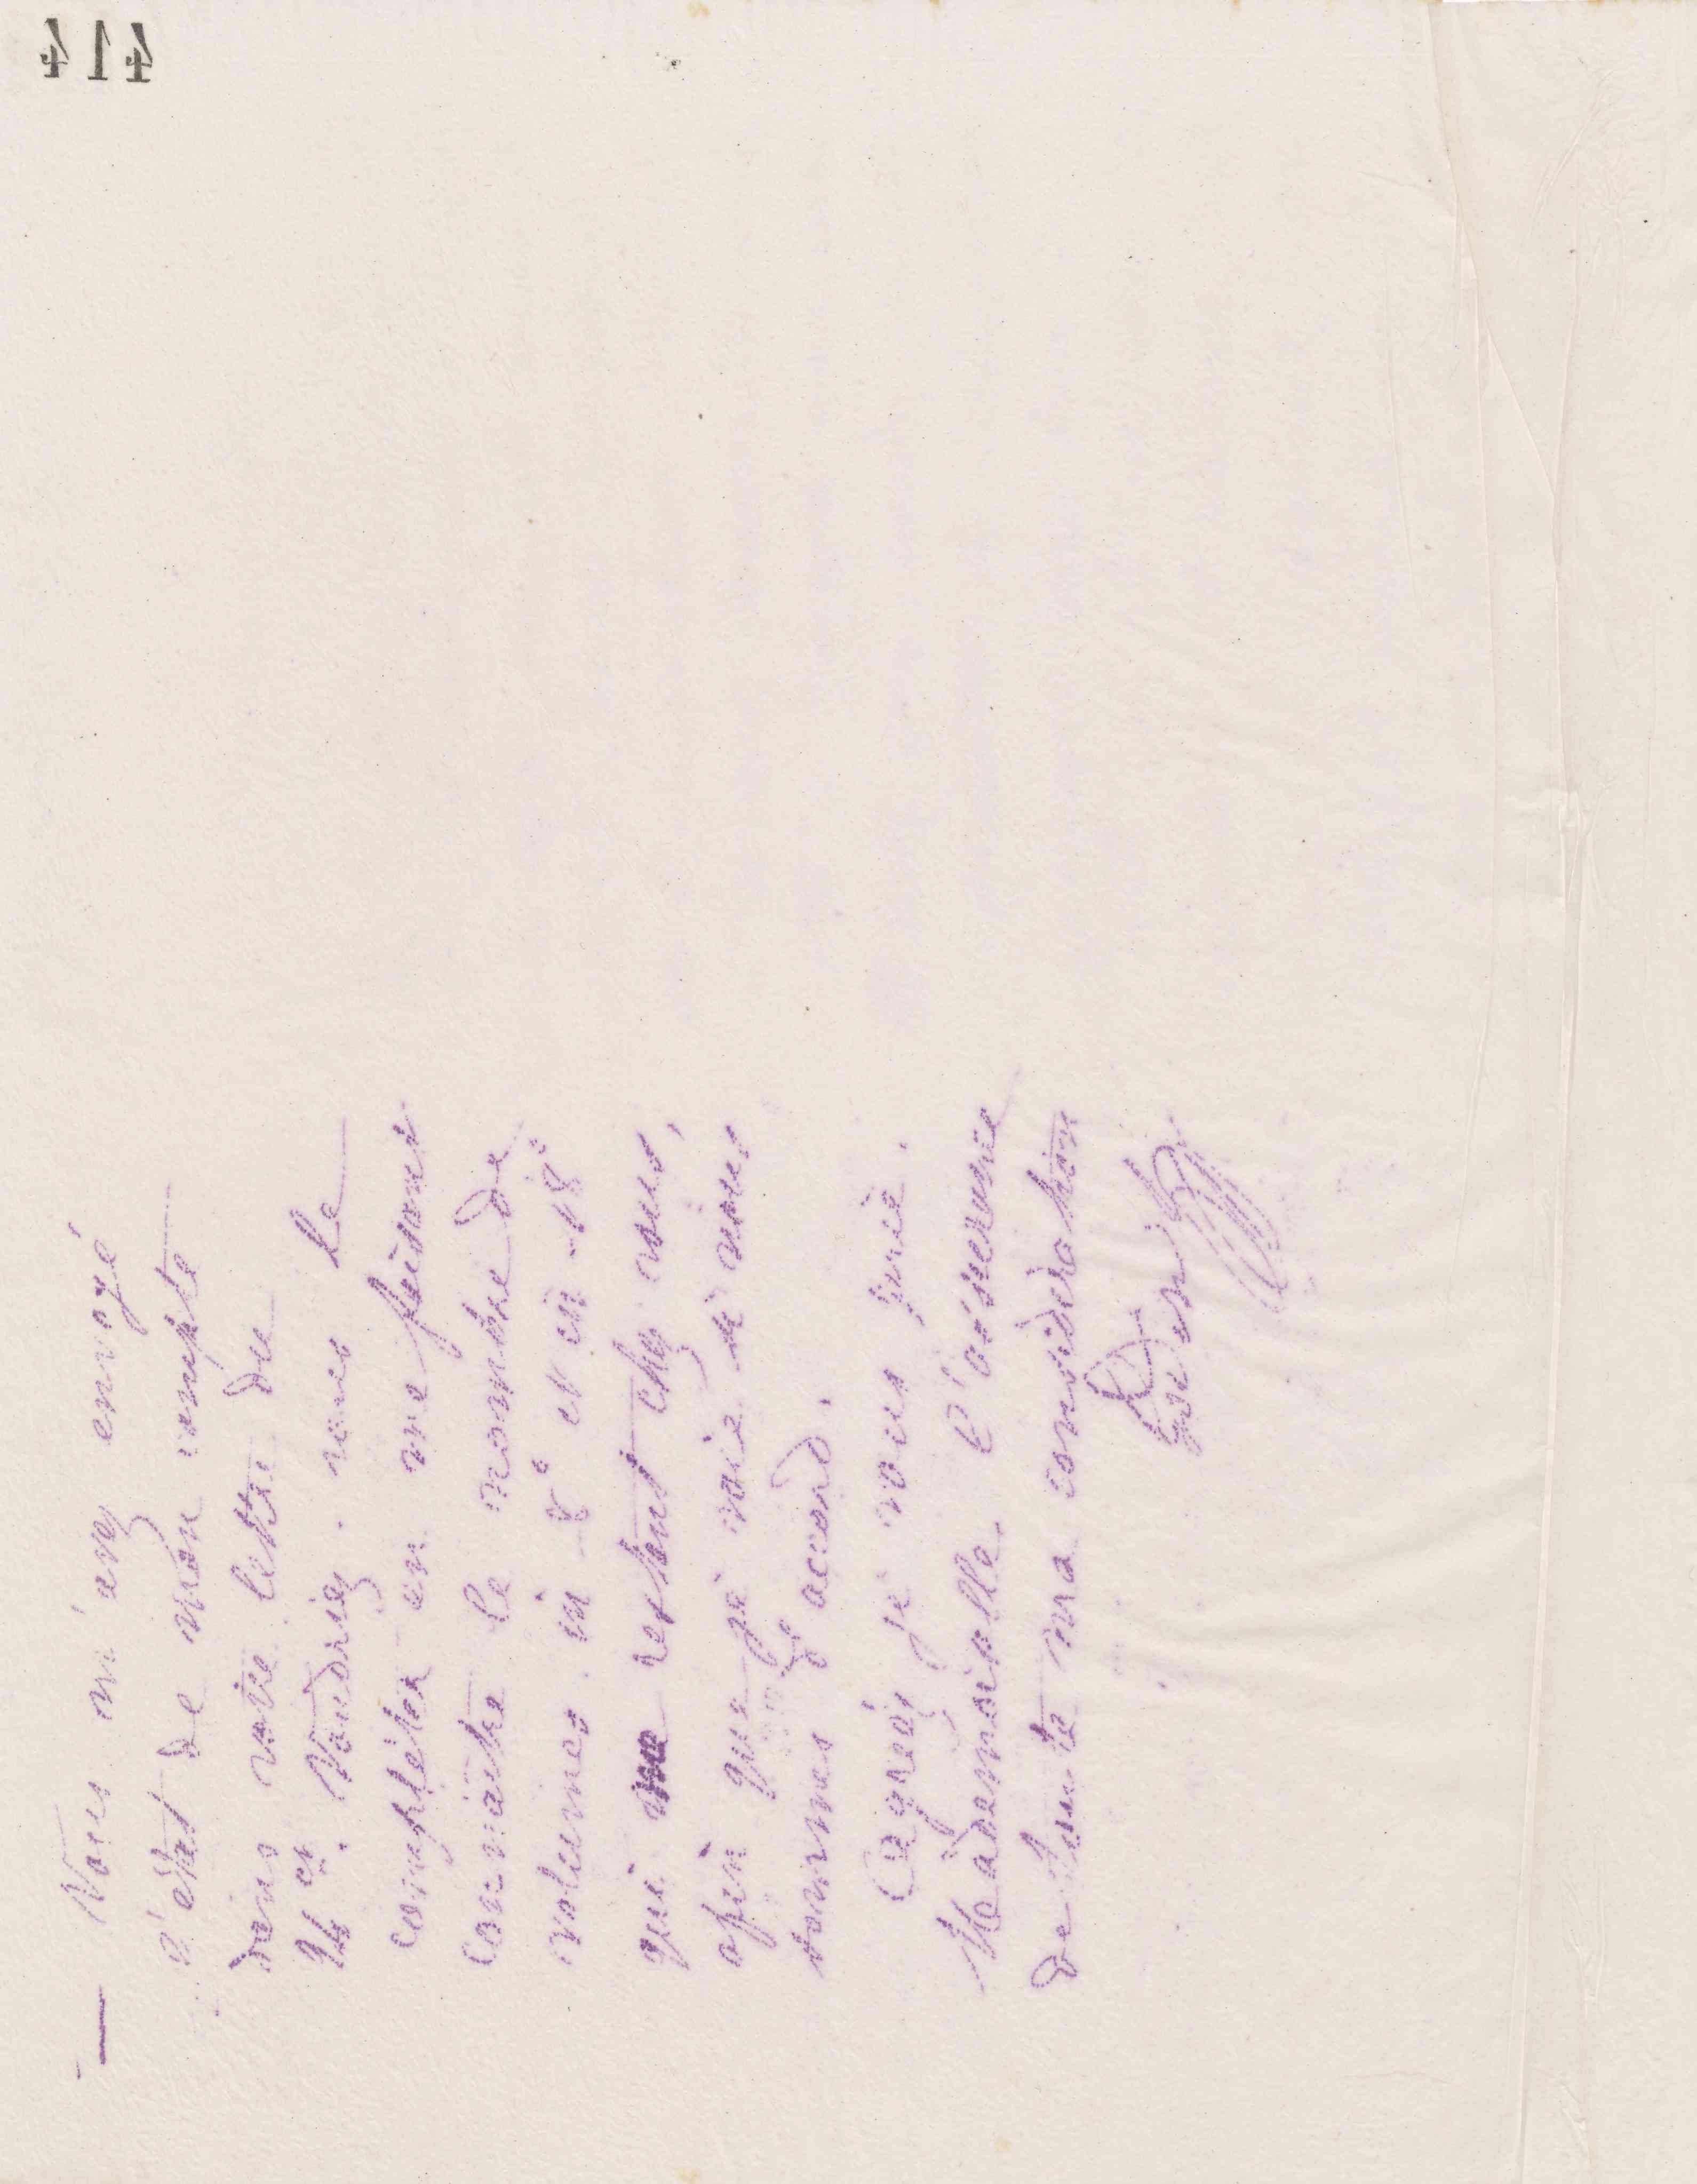 414
— Vous m'avez envoyé
l'état de mon compte
dans votre lettre du
24 ct. Voudriez-vous le
compléter en me faisant
connaître le nombre de
volumes in-8° et in-18°
qui me restent chez vous,
afin que je voie si nous
sommes d'accord.
Agréez je vous prie,
Mademoiselle, l'assurance
de toute ma considération
Godin